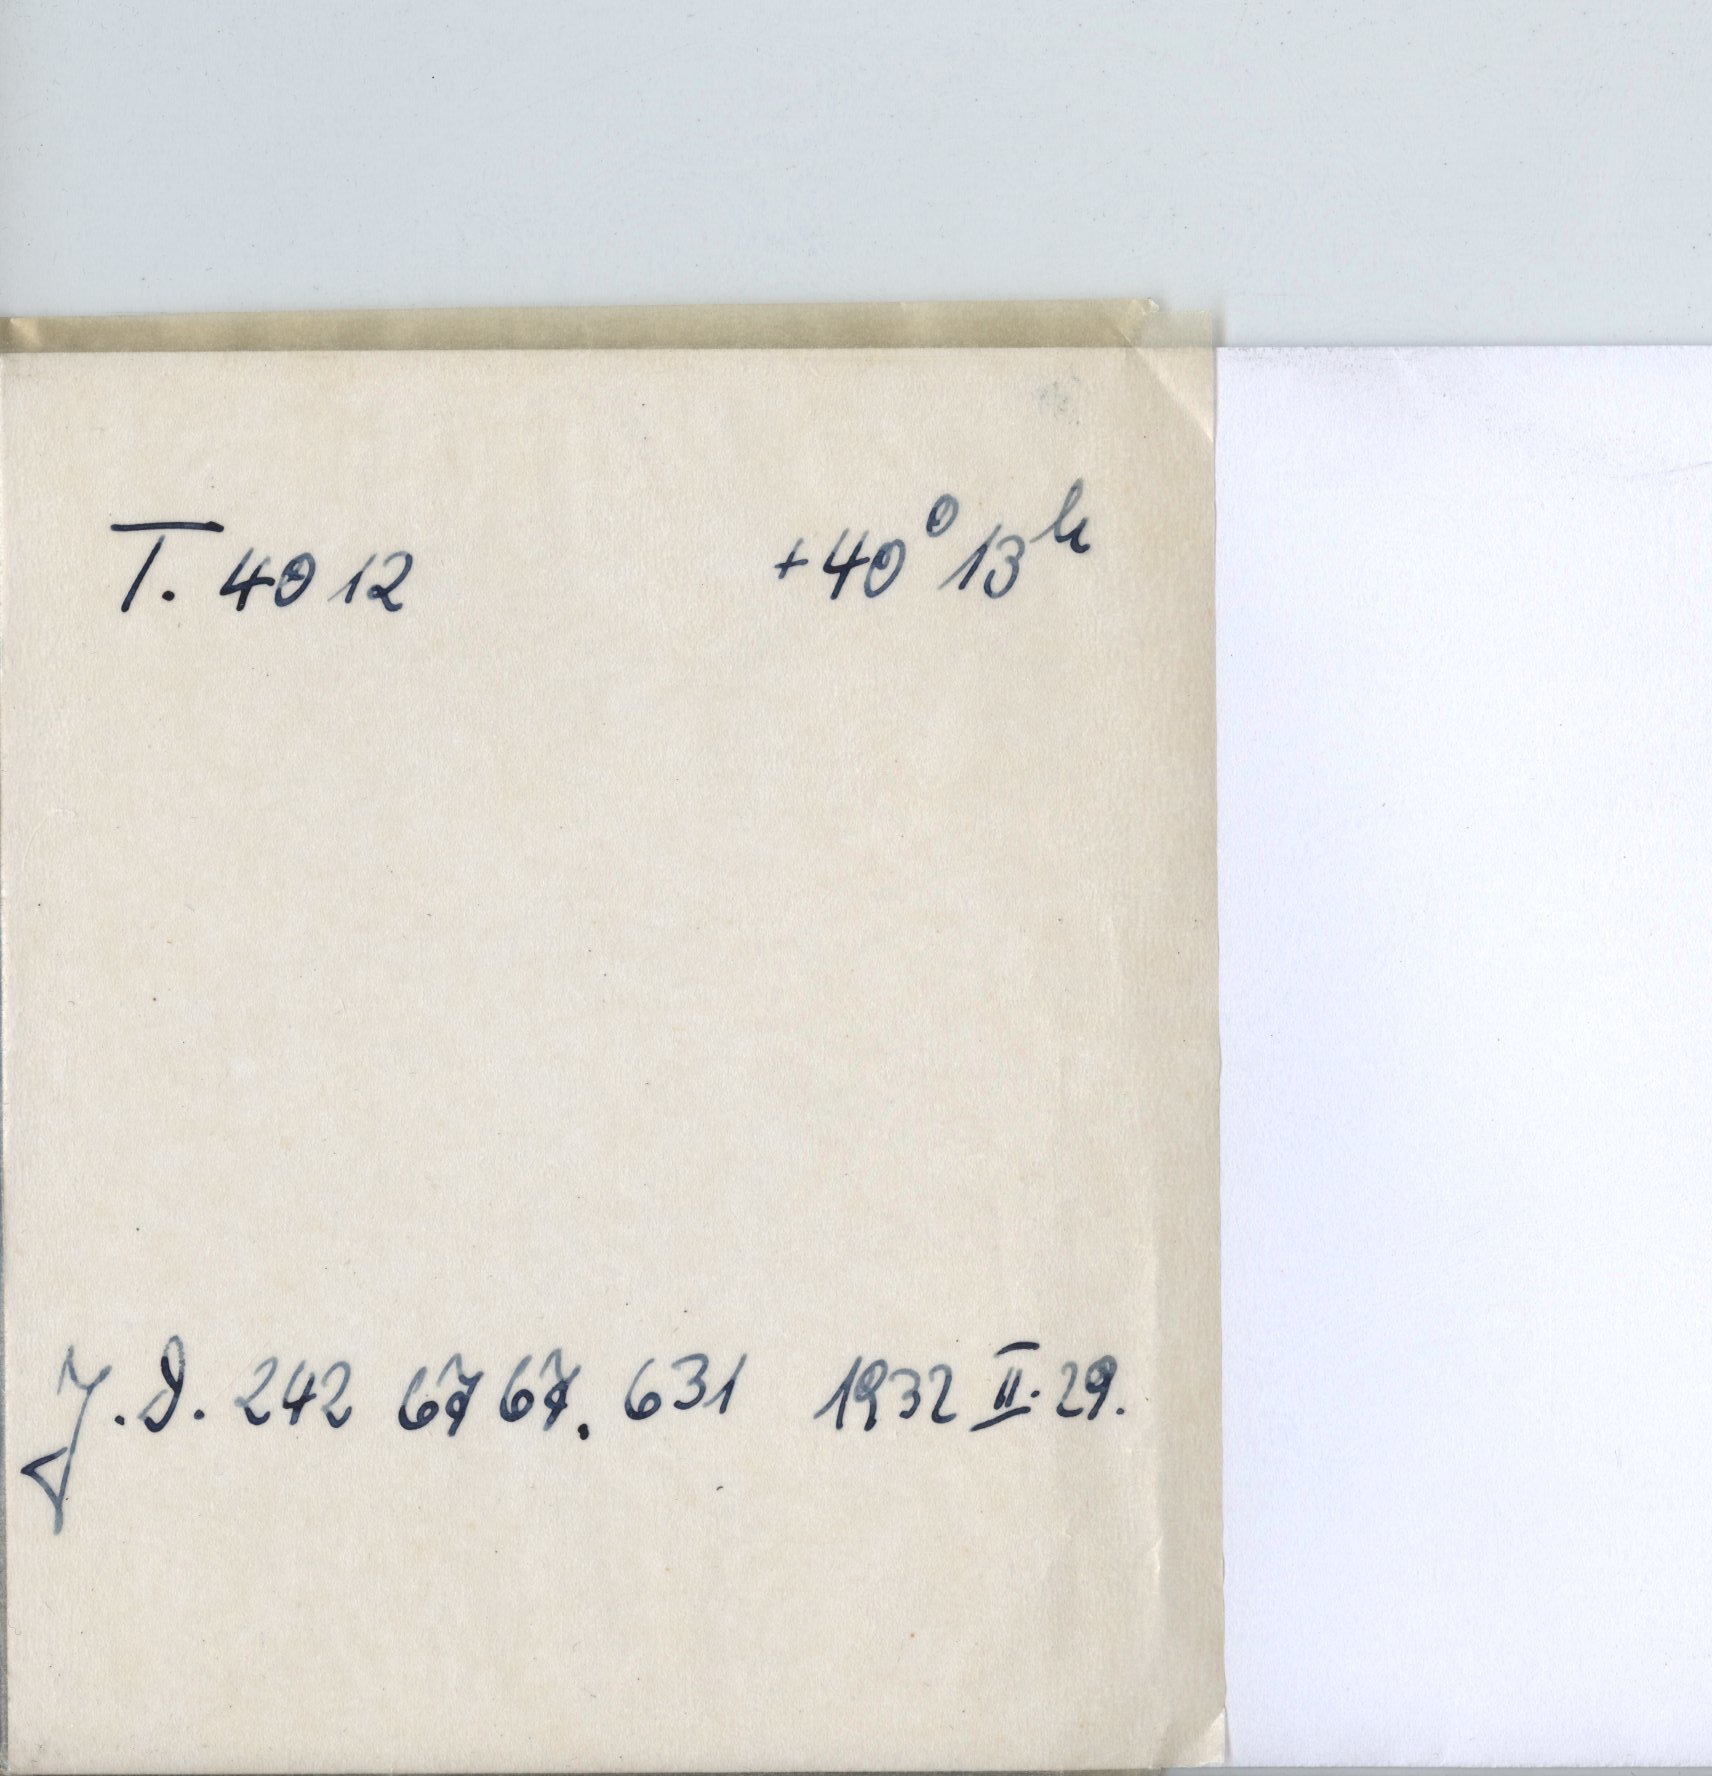 T. 4012 +40° 13h
J.D. 242 6767.631 1932 II. 29.